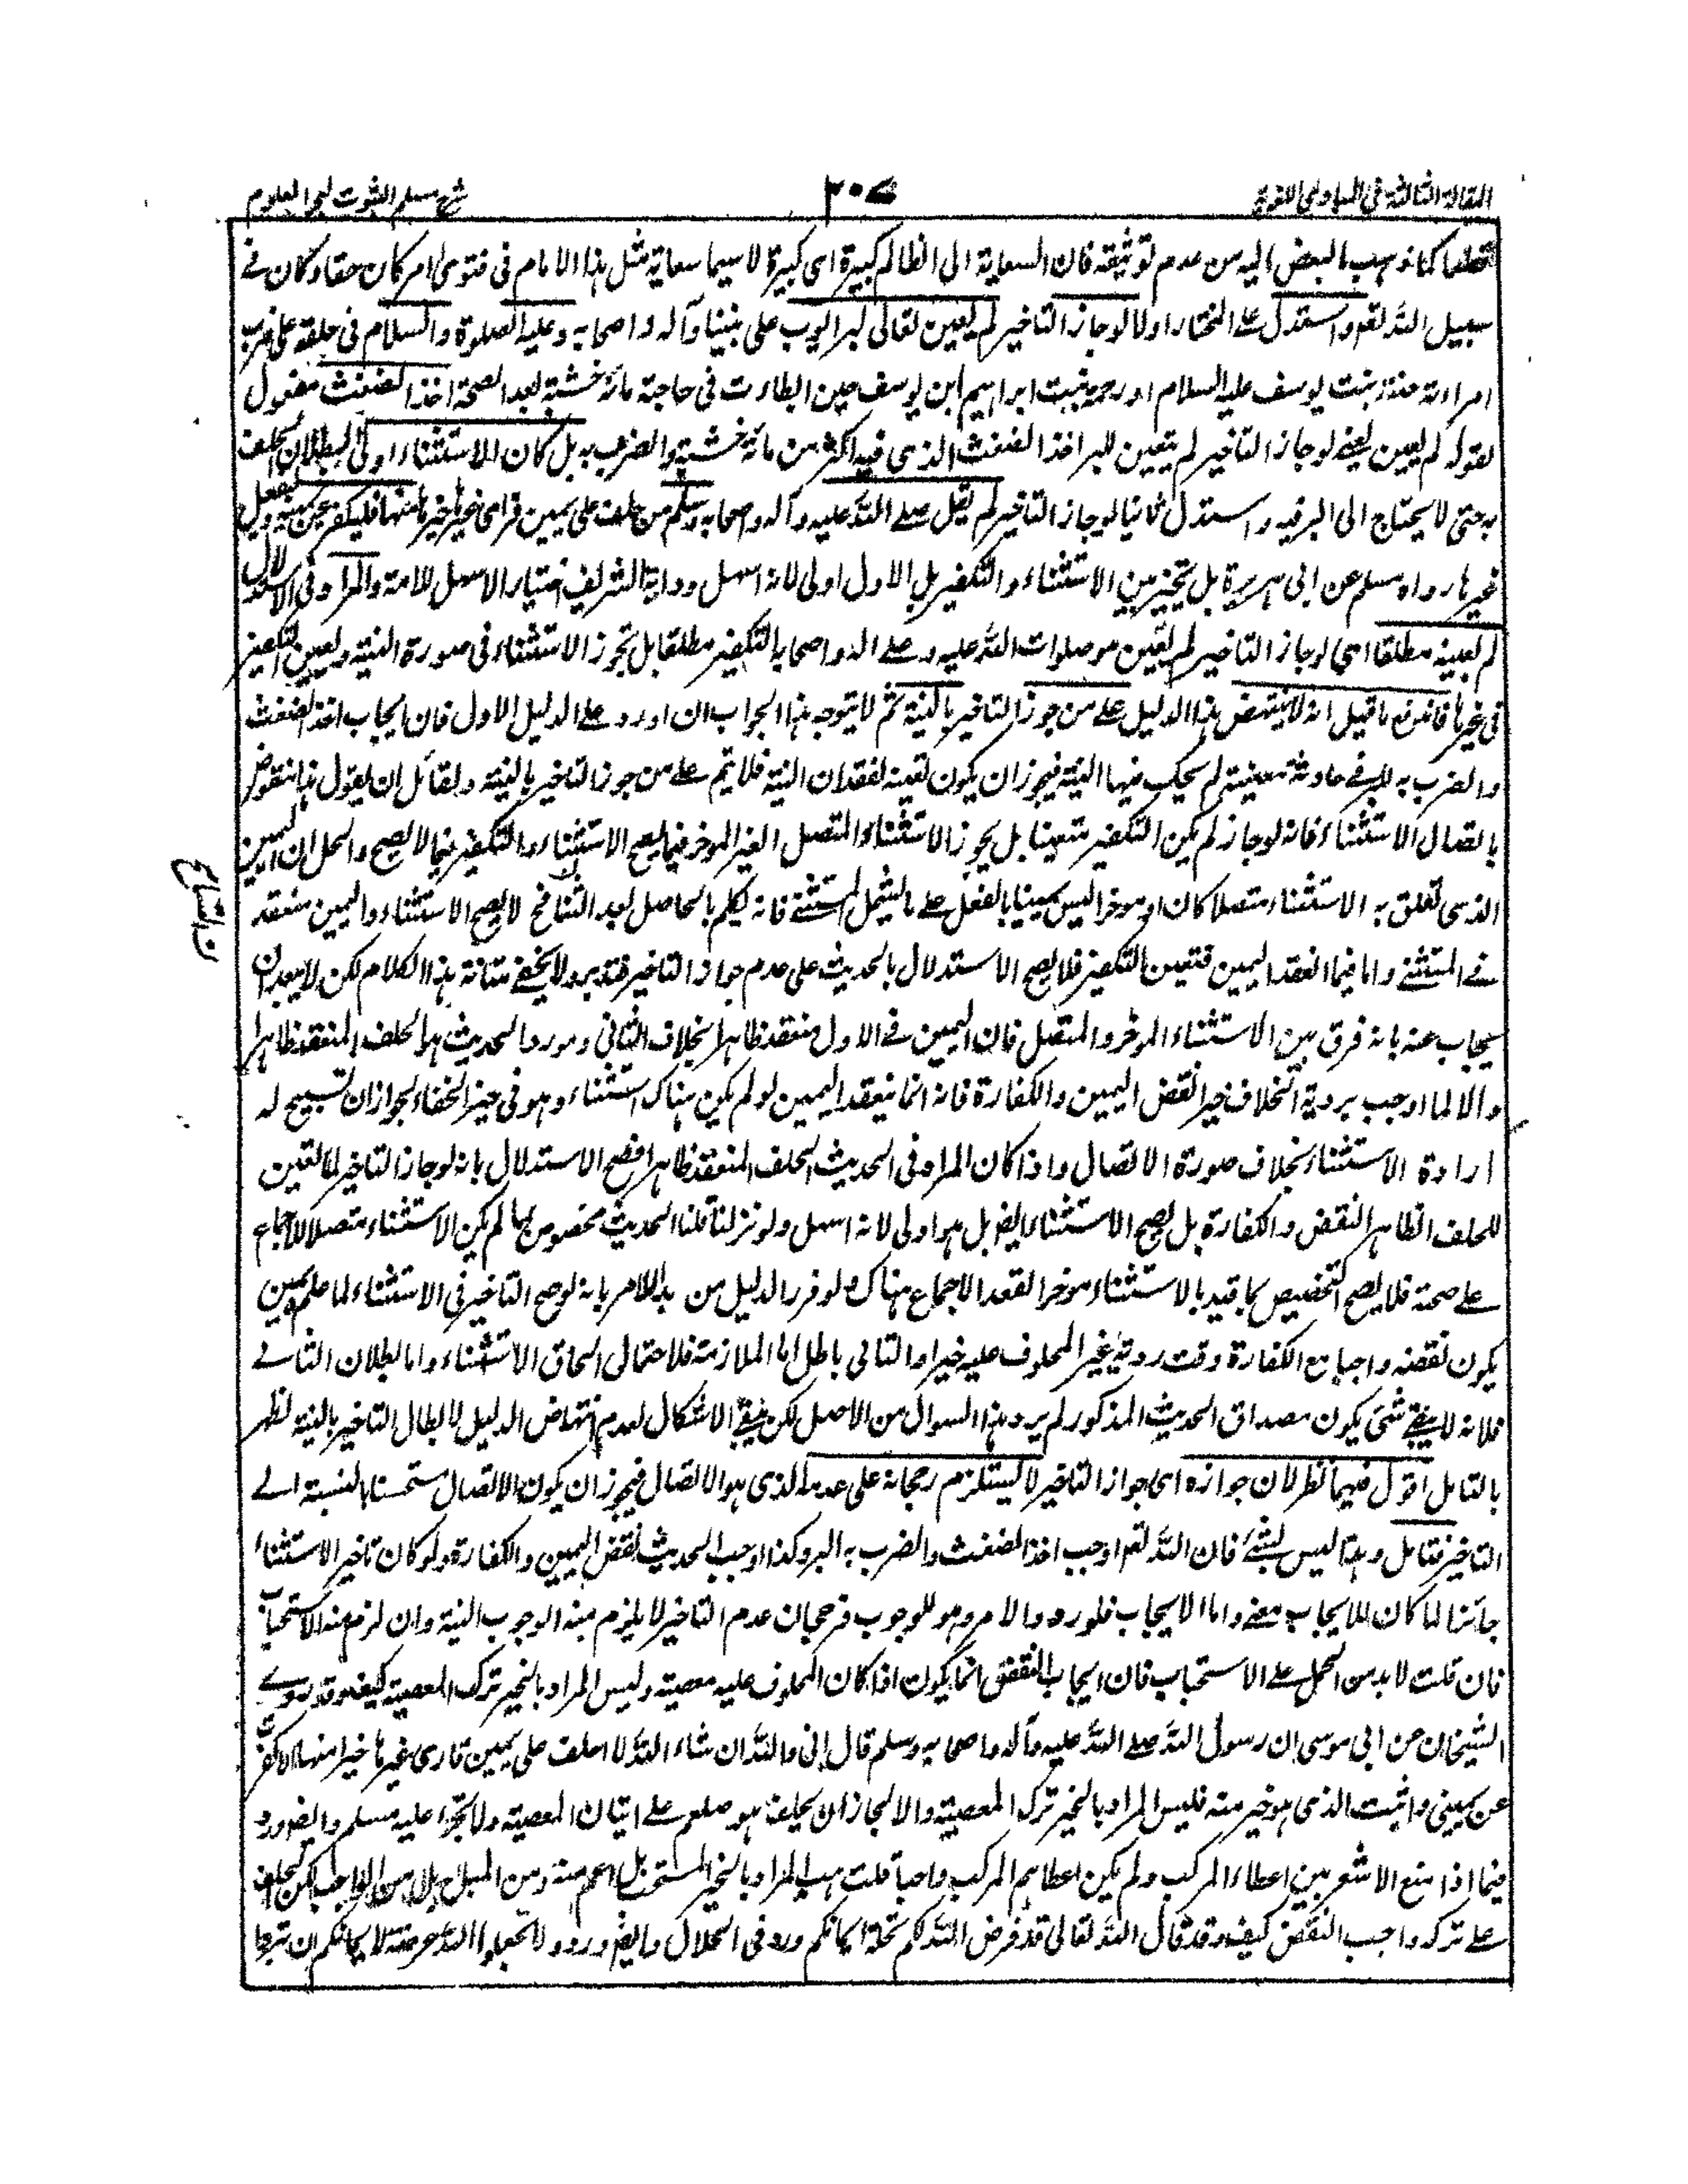 المقالة الثالثة فى المبادى اللغوية
٣٠٧
شرح مسلم الثبوت لبحر العلوم
قطعا كما ذهب البعض اليه من عدم توثيقه فان السعاية الى الظالم كبيرة اى كبيرة لا سيما سعاية مثل هذا الامام فى فتوى لامر كان حقا وكان فى
سبيل الله تعم واستدل على المختار اولا لو جاز التاخير لم يعين تعالى لبر ايوب على نبينا وآله واصحابه وعليه الصلوة والسلام فى حلفه على ضرب
امراءته بنت يوسف عليه السلام او رحمة بنت ابراهيم ابن يوسف حين ابطاءت فى حاجة مائة خشبة بعد الصحة اخذ الضغث مفعول
لقوله لم يعين يعنى لو جاز التاخير لم يتعين للبر اخذ الضغث الذى فيه اكثر من مائة خشبة والضرب به بل كان الاستثناء اولى لبطلان الحلف
به حتى لا يحتاج الى البر فيه واستدل ثانيا لو جاز التاخير لم يقل صلے الله عليه وآله واصحابه وسلم من حلف على يمين فراى غيرها خيرا منها فليكفر عن يمينه وليفعل
غيرها رواه مسلم عن ابى هريرة بل يتخير بين الاستثناء والتكفير بل الاول اولى لانه اسهل ودابه الشريف اختيار الاسهل للامة والمراد فى الاستدلال
لم يعينه مطلقا اى لو جاز التاخير لم يعين هو صلوات الله عليه وعلے اله واصحابه التكفير مطلقا بل تجوز الاستثناء فى صورة النية ويعين التكفير
فى غيرها فاندفع ما قيل انه لا ينتهض هذا الدليل على من جوز التاخير بالنية ثم لا يتوجه هذا الجواب ان اورد على الدليل الاول فان ايجاب اخذ الضغث
والضرب به للبر فى حادثة معينة لم يحك فيها النية فيجوز ان يكون تعينه لفقدان النية فلا يتم على من جوز التاخير بالنية ولقائل ان يقول هذا منقوض
باتصال الاستثناء فانه لو جاز لم يكن التكفير متعينا بل يجوز الاستثناء المتصل الغير الموخر فيما يصح الاستثناء والتكفير فيما لا يصح والحل ان اليمين
الذى تعلق به الاستثناء متصلا كان او موخرا ليس يمينا بالفعل على ما يشمل المستثنى فانه تكلم بالحاصل بعد الثنا فح لا يصح الاستثناء واليمين منعقد
فى المستثنى واما فيما انعقد اليمين فتعين التكفير فلا يصح الاستدلال بالحديث على عدم جواز التاخير فتدبر ولا يخفى متانة هذا الكلام لكن لا يبعد ان
يجاب عنه بانه فرق بين الاستثناء الموخر والمتصل فان اليمين فى الاول منعقد ظاهرا بخلاف الثانى ومورد الحديث هو الحلف المنعقد ظاهرا
والا لما اوجب برؤية الخلاف خيرا نقض اليمين والكفارة فانه انما ينعقد اليمين لو لم يكن هناك استثناء وهو فى حيز الخفاء لجواز ان تسبيح له
ارادة الاستثناء بخلاف صورة الاتصال واذا كان المراد فى الحديث الحلف المنعقد ظاهرا فصح الاستدلال بانه لو جاز التاخير لما تعين
للحلف الظاهر النقض والكفارة بل يصح الاستثناء ايضا بل هو اولى لانه اسهل ولو نزلنا قلنا الحديث مخصوص بما لم يكن الاستثناء متصلا للاجماع
على صحته فلا يصح التخصيص بما قيد بالاستثناء موخرا لفقد الاجماع هناك ولو قرر الدليل من بدء الامر بانه لو صح التاخير فى الاستثناء لما علم يمين
يكون نقضه واجبا مع الكفارة وقت رؤية غير المحلوف عليه خيرا والتالى باطل اما الملازمة فلاحتمال الحاق الاستثناء واما بطلان التالى
فلانه لا يبقى شئ يكون مصداق الحديث المذكور لم يرد هذا السوال من الاصل لكن يبقى الاشكال لعدم انتهاض الدليل لابطال التاخير بالنية يظهر
بالتامل اقول فيهما نظر لان جوازه اى جواز التاخير لا يستلزم رجحانه على عدمه الذى هو الاتصال فيجوز ان يكون الاتصال مستحسنا بالنسبة الى
التاخير فتامل وهذا ليس بشئ فان الله تعم اوجب اخذ الضغث والضرب به للبر وكذا اوجب الحديث نقض اليمين والكفارة ولو كان تاخير الاستثناء
جائزا لما كان للايجاب معنى واما الايجاب فلورود الامر وهو للوجوب فرجحان عدم التاخير لا يلزم منه الوجوب البتة وان لزم منه الاستحباب
فان قلت لا بد من الحمل على الاستحباب فان ايجاب النقض انما يكون اذا كان المحلوف عليه معصية وليس المراد بالخير ترك المعصية كيف وقد روى
الشيخان عن ابى موسى ان رسول الله صلے الله عليه وآله واصحابه وسلم قال انى والله ان شاء الله لا احلف على يمين فارى غيرها خيرا منها الا كفرت
عن يمينى واتيت الذى هو خير منه فليس المراد بالخير ترك المعصية والا لجاز ان يحلف هو صلعم على اتيان المعصية ولا يجترء عليه مسلم وايضا ورد
فيما اذا منع الاشعريين اعطاء المركب ولم يكن اعطاءهم المركب واجبا قلت هب المراد بالخير المستحب بل اعم منه ومن المباح بلا من الواجب لكن الحلف
على تركه واجب النقض كيف وقد قال الله تعالى قد فرض الله لكم تحلة ايمانكم ورد فى الحلال وايضا ورد ولا تجعلوا الله عرضة لايمانكم ان تبروا